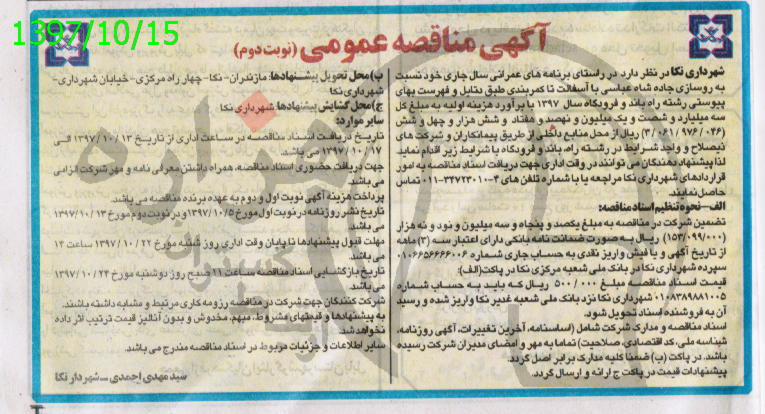 1397/10/15
آگهی مناقصه عمومی (نوبت دوم)
شهرداری نکا در نظر دارد در راستای برنامه های عمرانی سال جاری خود نسبت
به روسازی جاده شاه عباسی با آسفالت تا کمربندی طبق نقایل و فهرست بهای
پیوستی رشته راه باند و فرودگاه سال ۱۳۹۷ با برآورد هزینه اولیه به مبلغ کل
سه میلیارد و شصت و یک میلیون و نهصد و هفتاد و شش هزار و چهل و شش
(۳/۰۶۱/۹۷۶/۰۴۶) ریال از محل منابع داخلی از طریق پیمانکاران و شرکت های
ذیصلاح و واجد شرایط در رشته راه باند و فرودگاه با شرایط زیر اقدام نماید
لذا پیشنهاد دهندگان می توانند در وقت اداری جهت دریافت اسناد مناقصه به امور
قراردادهای شهرداری نکا مراجعه یا با شماره تلفن های ۴-۳۴۷۲۳۰۱۰-۰۱۱ تماس
حاصل نمایند.
الف- نحوه تنظیم اسناد مناقصه:
تضمین شرکت در مناقصه به مبلغ یکصد و پنجاه و سه میلیون و نود و نه هزار
(۱۵۳/۰۹۹/۰۰۰) ریال به صورت ضمانت نامه بانکی دارای اعتبار سه (۳) ماهه
از تاریخ آگهی و یا فیش واریز نقدی به حساب جاری شماره ۰۱۰۶۶۵۶۶۶۶۰۰۶
سپرده شهرداری نکا در بانک ملی شعبه مرکزی نکا در پاکت (الف):
قیمت اسناد مناقصه مبلغ ۵۰۰/۰۰۰ ریال که باید به حساب شماره
۰۱۰۸۳۸۹۸۸۱۰۰۵ شهرداری نکا نزد بانک ملی شعبه غدیر نکا واریز شده و رسید
آن به فروشنده اسناد تحویل شود.
اسناد مناقصه و مدارک شرکت شامل (اساسنامه، آخرین تغییرات، آگهی روزنامه،
شیناسه ملی، کد اقتصادی، صلاحیت) تماما به مهر و امضای مدیران شرکت رسیده
باشد. در پاکت (ب) ضمنا کلیه مدارک برابر اصل گردد.
پیشنهادات قیمت در پاکت ج ارائه و ارسال گردد.
ب) محل تحویل پیشنهادها: مازندران- نکا- چهار راه مرکزی- خیابان شهرداری-
شهرداری نکا
ج) محل گشایش پیشنهادها: شهرداری نکا
سایر موارد:
تاریخ دریافت اسناد مناقصه در ساعت اداری از تاریخ ۱۳۹۷/۱۰/۱۳ الی
۱۳۹۷/۱۰/۱۷ می باشد.
جهت دریافت حضوری اسناد مناقصه، همراه داشتن معرفی نامه و مهر شرکت الزامی
می باشد.
پرداخت هزینه آگهی نوبت اول و دوم به عهده برنده مناقصه می باشد.
تاریخ نشر روزنامه در نوبت اول مورخ ۱۳۹۷/۱۰/۵ و در نوبت دوم مورخ ۱۳۹۷/۱۰/۱۳
می باشد.
مهلت قبول پیشنهادها تا پایان وقت اداری روز شنبه مورخ ۱۳۹۷/۱۰/۲۲ ساعت ۱۴
می باشد.
تاریخ بازگشایی اسناد مناقصه ساعت ۱۱ صبح روز دوشنبه مورخ ۱۳۹۷/۱۰/۲۴
می باشد.
شرکت کنندگان جهت شرکت در مناقصه رزومه کاری مرتبط و مشابه داشته باشند.
به پیشنهادها و قیمتهای مشروط، مبهم، مخدوش و بدون آنالیز قیمت ترتیب اثر داده
نخواهد شد.
سایر اطلاعات و جزئیات مربوط در اسناد مناقصه مندرج می باشد.
سید مهدی احمدی - شهردار نکا